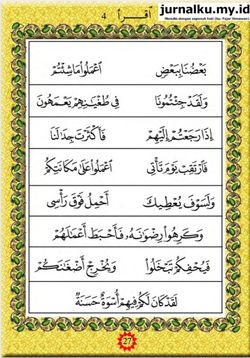 jurnalku.my.id
اقرأ 4
بَعْضُنَا بِبَعْضٍ اعْمَلُوا مَا شِئْتُمْ
وَلَقَدْ جِئْتُمُونَا فِي طُغْيَنِهِمْ يَعْمَهُونَ
إِذَا رَجَعْتُمْ إِلَيْهِمْ فَأَكْثَرْتَ جِدَلَنَا
فَارْتَقِبْ يَوْمَ تَأْتِي اعْمَلُوا عَلَى مَكَانَتِكُمْ
وَلَسَوْفَ يُعْطِيكَ أَحْمِلُ فَوْقَ رَأْسِي
وَكَرِهُوا رِضْوَنَهُ فَأَحْبَطَ أَعْمَلَهُمْ
فَيُحْفِكُمْ تَبْخَلُوا وَيُخْرِجْ أَضْغَنَكُمْ
لَقَدْ كَانَ لَكُمْ فِيهِمْ أُسْوَةٌ حَسَنَةٌ
27